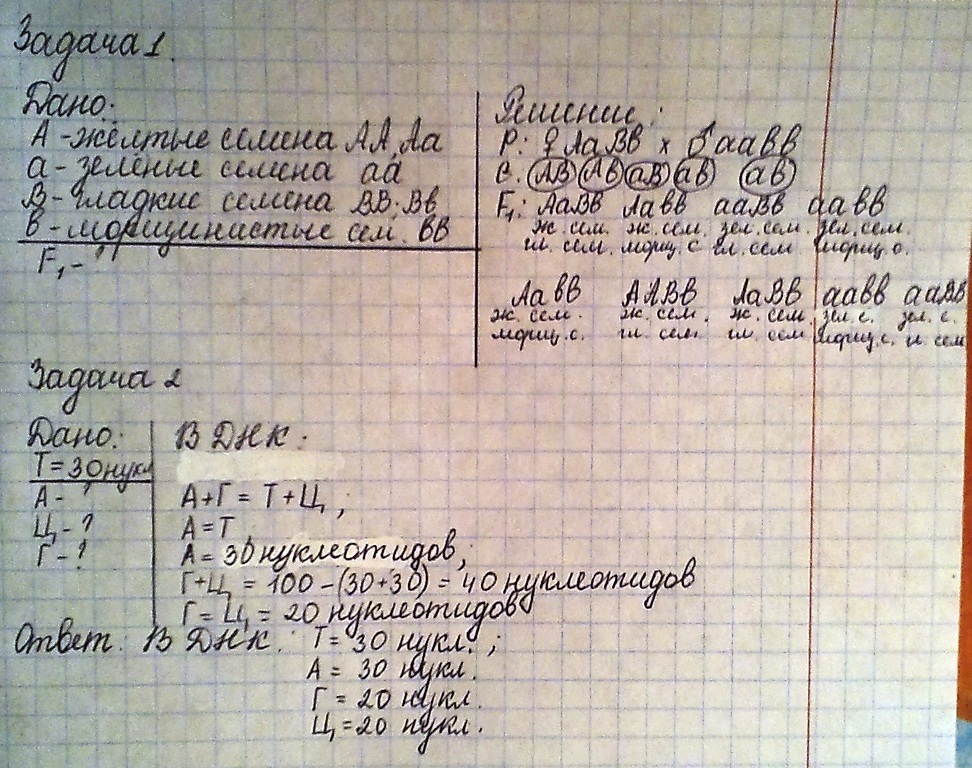 Задача 1.
Дано:
А - жёлтые семена АА, Аа
а - зелёные семена аа
В - гладкие семена ВВ; Вв
в - морщинистые сем. вв
F₁ - ?
Решение:
Р: ♀ АаВв х ♂ аавв
G: АВ Ав аВ ав ав
F₁: АаВв Аавв ааВв аавв
ж. сем. ж. сем. зел. сем. зел. сем.
гл. сем. морщ. с гл. сем. морщ. с.
Аавв ААВв АаВв аавв ааВв
ж. сем. ж. сем. ж. сем. зел. с. зел. с.
морщ. с. гл. сем. гл. сем морщ. с. гл. сем
Задача 2
Дано:
Т = 30 нукл
А - ?
Ц - ?
Г - ?
В ДНК:
А+Г = Т+Ц ;
А = Т
А = 30 нуклеотидов;
Г+Ц = 100 - (30+30) = 40 нуклеотидов
Г = Ц = 20 нуклеотидов
Ответ: В ДНК: Т = 30 нукл. ;
А = 30 нукл.
Г = 20 нукл.
Ц = 20 нукл.